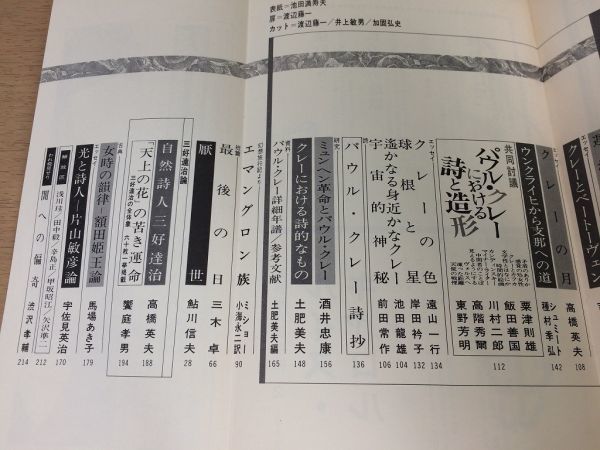 表紙=池田満寿夫
扉=渡辺藤一
カット=渡辺藤一/井上敏男/加固弘史
クレーとベートーヴェン
高橋英夫
108
エッセイ
クレーの月
シュミート
種村季弘
142
ウンクライヒから支那への道
共同討議
パウル・クレーにおける
詩と造形
粟津則雄
飯田善国
川村二郎
高階秀爾
東野芳明
112
エッセイ
クレーの色
遠山一行
134
球根と星
岸田衿子
132
遙かなる身近かなクレー
池田龍雄
104
宇宙的神秘
前田常作
106
詩
パウル・クレー詩抄
136
研究
ミュンヘン革命とパウル・クレー
酒井忠康
156
クレーにおける詩的なもの
土肥美夫
148
資料
パウル・クレー詳細年譜/参考文献
土肥美夫編
165
幻想旅行記より
エマングロン族
ミショー
小海永二訳
90
最後の日
三木卓
66
厭世
鮎川信夫
28
三好達治論
自然詩人三好達治
高橋英夫
188
「天上の花」の苦き運命
三好達治の全体像
六十枚一挙掲載
饗庭孝男
194
古典
女時の韻律―額田姫王論
馬場あき子
179
エッセイ
光と詩人―片山敏彦論
宇佐見英治
170
解放区
浅川珪二/田中毅/辛島正/甲坂昭江/矢沢準二
212
われ発見せり
闇への信号
渋沢孝輔
214